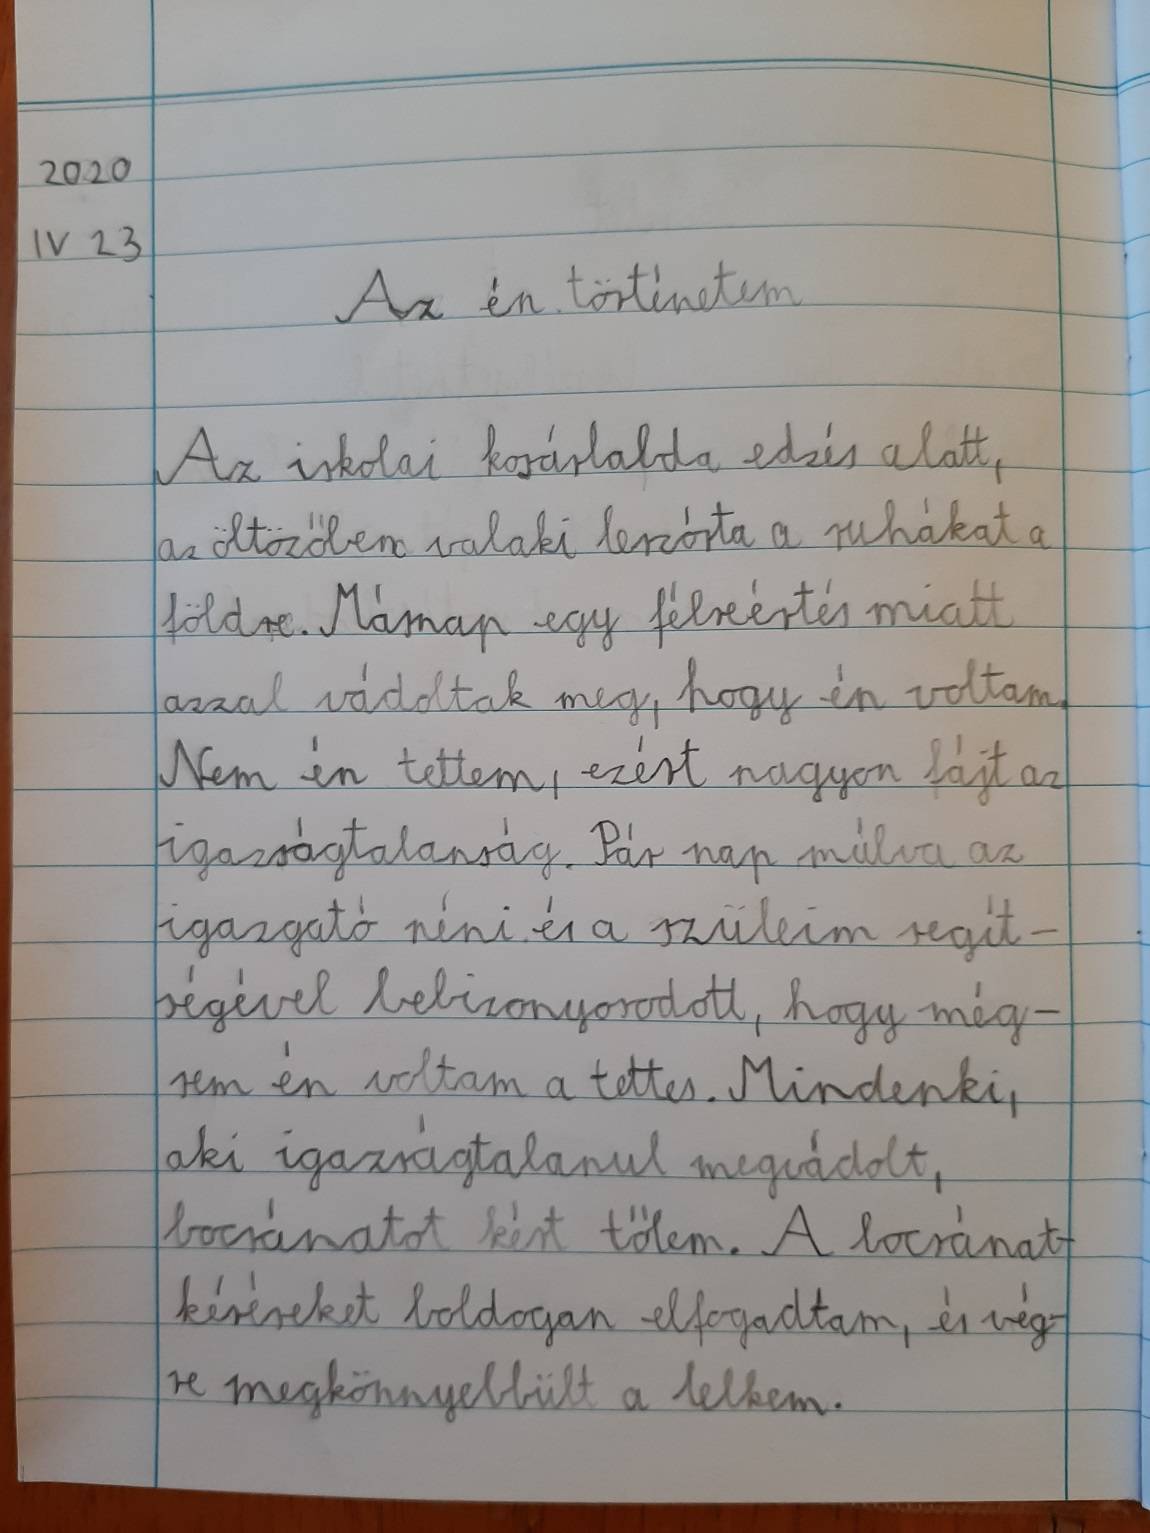 2020
IV 23
Az én történetem
Az iskolai kosárlabda edzés alatt,
az öltözőben valaki leszórta a ruhákat a
földre. Másnap egy félreértés miatt
azzal vádoltak meg, hogy én voltam.
Nem én tettem, ezért nagyon fájt az
igazságtalanság. Pár nap múlva az
igazgató néni és a szüleim segít-
ségével bebizonyosodott, hogy még-
sem én voltam a tettes. Mindenki,
aki igazságtalanul megvádolt,
bocsánatot kért tőlem. A bocsánat-
kéréseket boldogan elfogadtam, és vég-
re megkönnyebbült a lelkem.